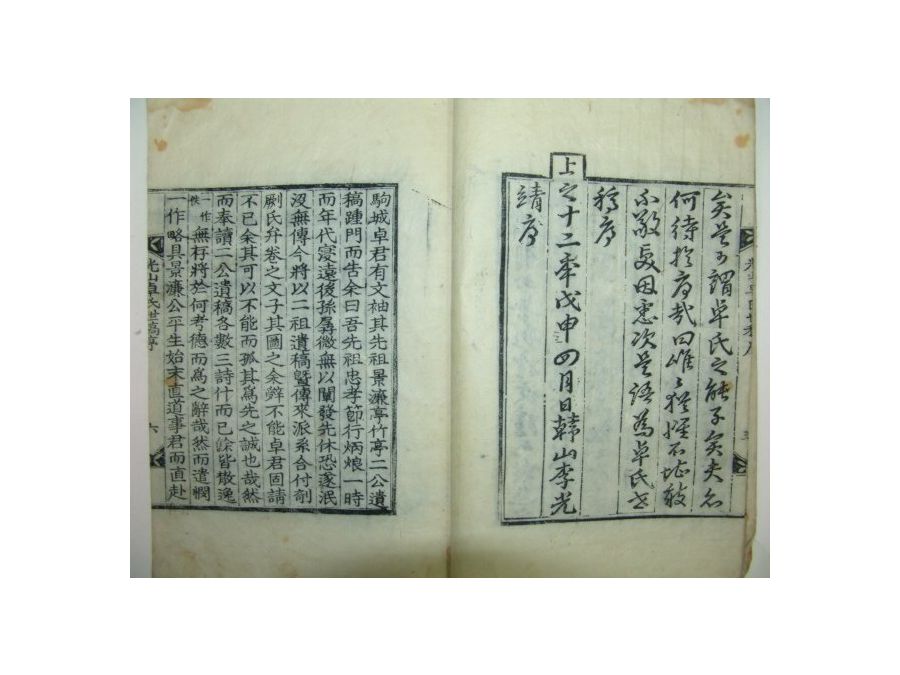 矣是可謂卓氏之能子矣夫然
何待於序哉曰唯唯猶懼不堪敢
不敬
次是語為卓氏世
稿序
上之十二年戊申四月日韓山李光
靖序
駒城卓君有文袖其先祖景濂亭竹亭二公遺
稿踵門而告余曰吾先祖忠孝節行炳烺一時
而年代寖遠後孫孱微無以闡發先休恐遂泯
沒無傳今將以二祖遺稿曁傳來派系合付剞
劂氏弁卷之文子其圖之余辭不能卓君固請
不已余其可以不能而孤其爲先之誠也哉然
而奉讀二公遺稿各數三詩什而已餘皆散逸
佚一作無存將於何考德而爲之辭哉然而遺
一作略具景濂公平生始末直道事君而直赴
光山卓氏世稿序
六